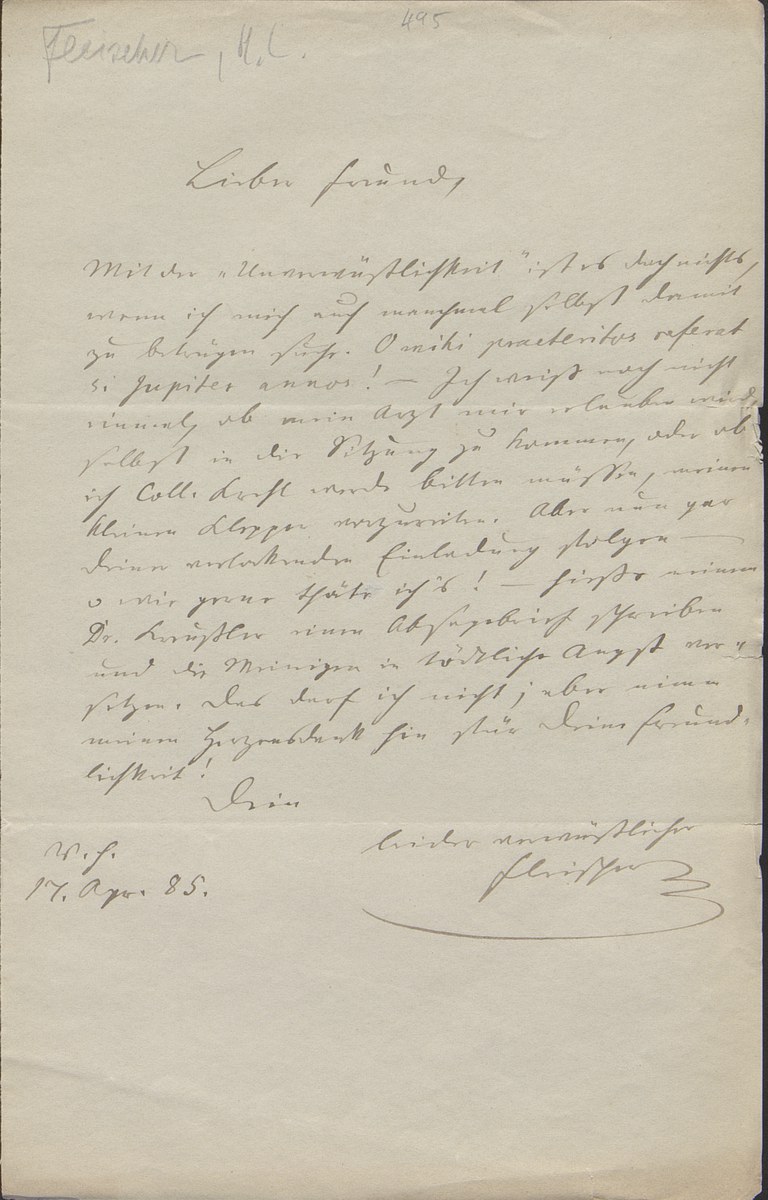 495
Fleischer, H. L.
Lieber Freund,
Mit der „Unverwüstlichkeit" ist es doch nichts,
wenn ich mich auch manchmal selbst damit
zu betrügen suche. O mihi praeteritos referat
si Jupiter annos! — Ich weiß noch nicht
einmal, ob mein Arzt mir erlauben wird,
selbst in die Sitzung zu kommen, oder ob
ich Coll. Krehl werde bitten müssen, meinen
kleinen Klepper vorzureiten. Aber nun gar
Deiner verlockenden Einladung folgen —
o wie gerne thäte ich's! — hieße meinem
Dr. Kreußler einen Absagebrief schreiben
und die Meinigen in tödtliche Angst ver-
setzen. Das darf ich nicht; aber nimm
meinen Herzensdank hin für Deine Freund-
lichkeit!
Dein
leider verwüstlicher
Fleischer
V. H.
17. Apr. 85.